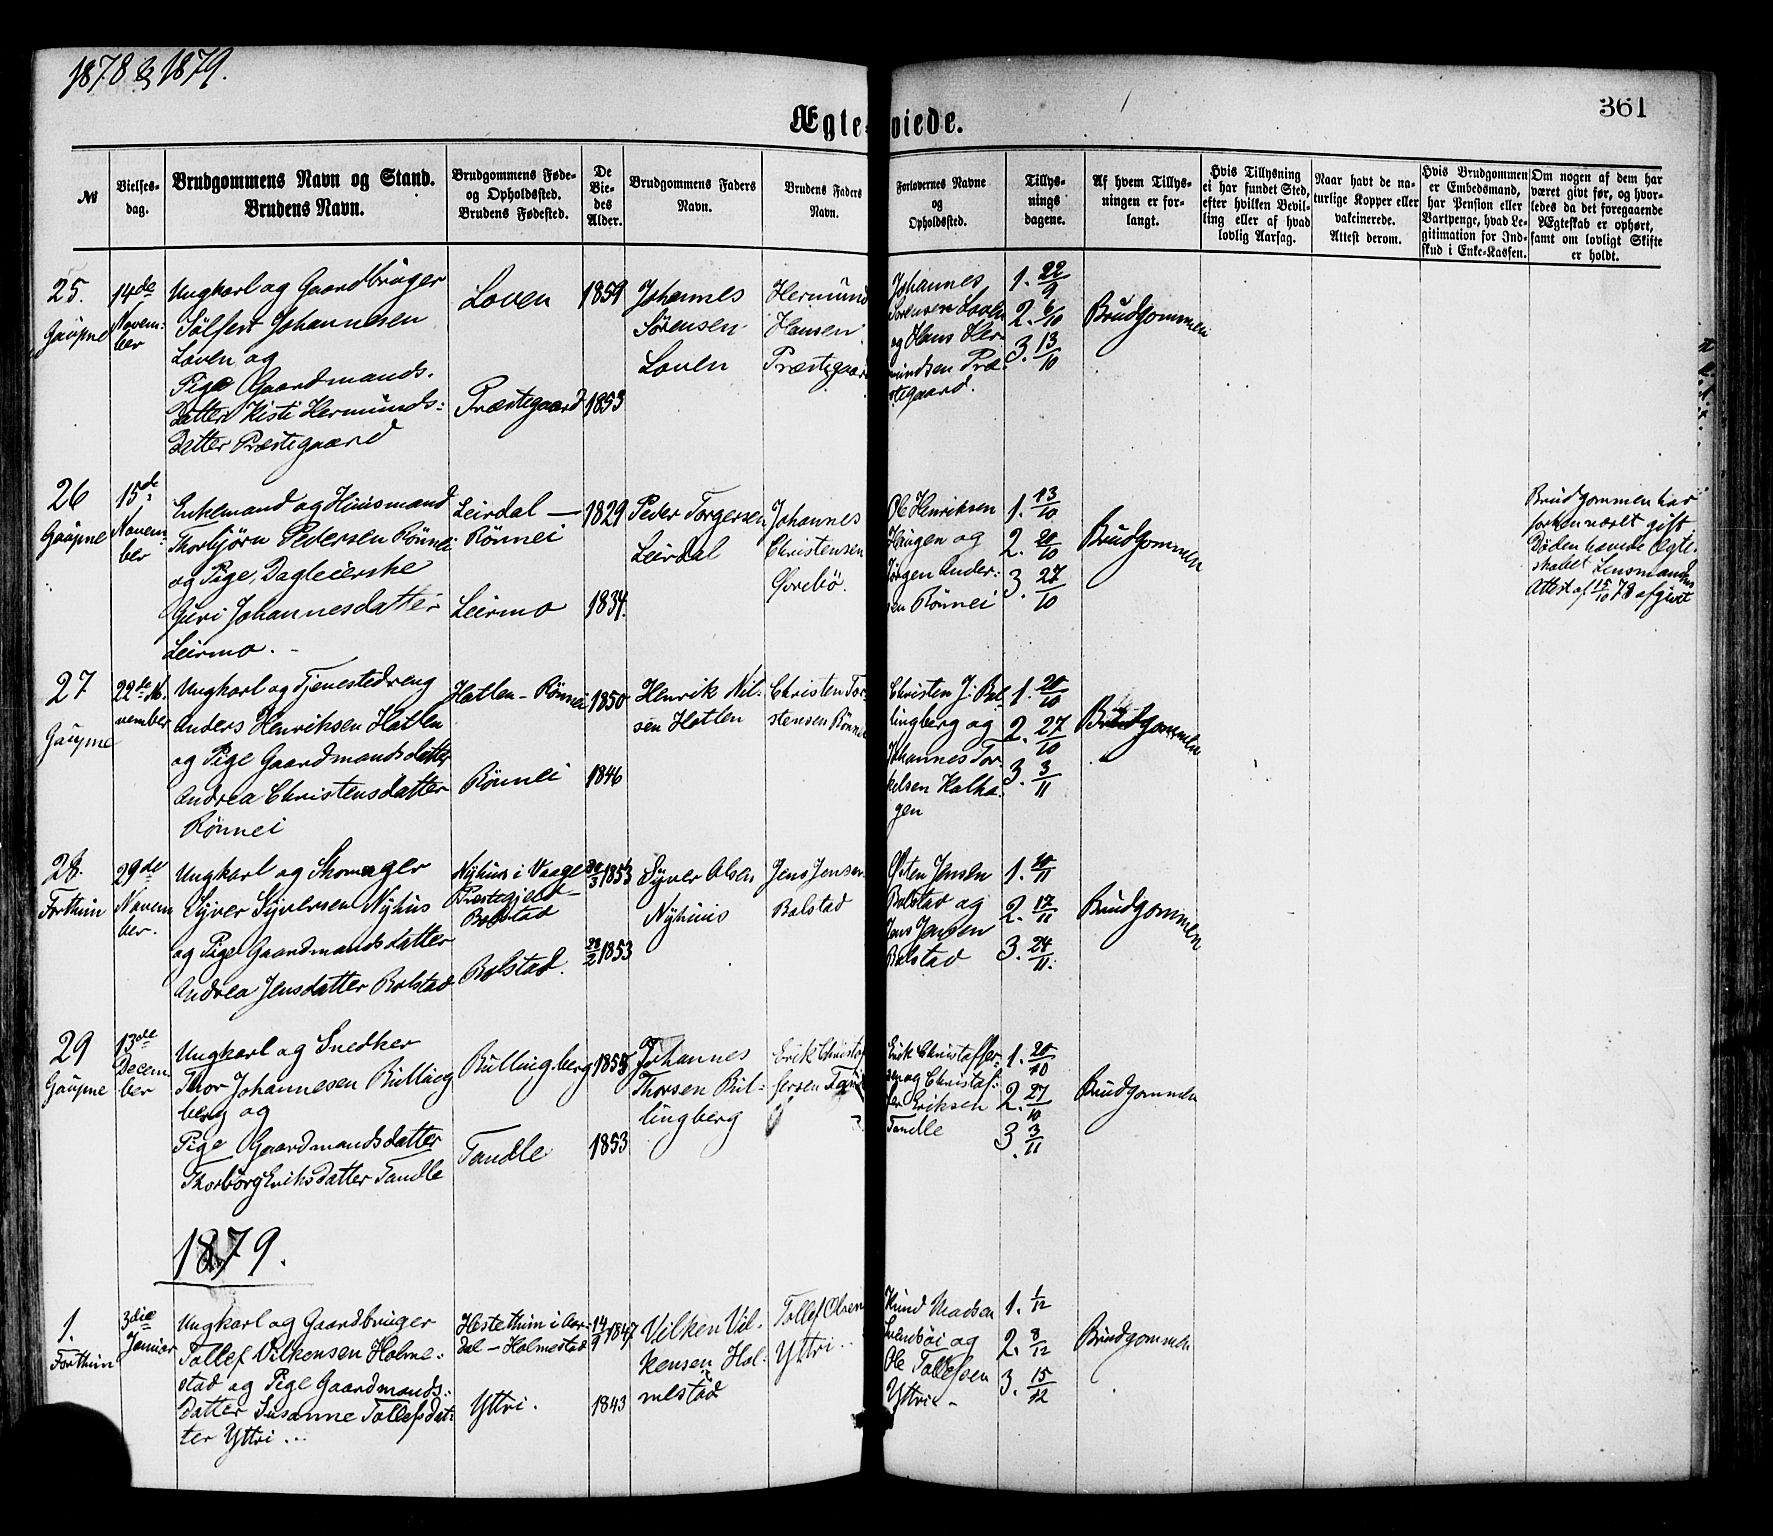 1878 & 1879.
361
Ægteviede.
№
Vielses-
dag.
Brudgommens Navn og Stand.
Brudens Navn.
Brudgommens Føde-
og Opholdssted.
Brudens Fødested.
De
Vie-
des
Alder.
Brudgommens Faders
Navn.
Brudens Faders
Navn.
Forlovernes Navne
og
Opholdssted.
Tillys-
nings
dagene.
Af hvem Tillys-
ningen er for-
langt.
Hvis Tillysning
ei har fundet Sted,
efter hvilken Bevil-
ling eller af hvad
lovlig Aarsag.
Naar havt de na-
turlige Kopper eller
vakcinerede.
Attest derom.
Hvis Brudgommen
er Embedsmand,
har Pension eller
Vartpenge, hvad Le-
gitimation for Ind-
skud i Enke-Kassen.
Om nogen af dem har
været givt før, og hvor-
ledes da det foregaaende
Ægteskab er ophørt,
samt om lovligt Skifte
er holdt.
25.
Gaupne
14de
Novem-
ber
Ungkarl og Gaardbruger
Sølfest Johannesen
Loven og
Pige Gaardmands-
Datter Kisti Hermunds-
Datter Præstegaard
Loven
Præstegaard
1859
1853
Johannes
Sørensen
Loven
Hermund
Hansen
Præstegaar
Johannes
Sørensen Loven
og Hans Her-
mundsen Præ-
stegaard.
1. 22/9
2. 6/10
3. 13/10
Brudgommen
26
Gaupne
15de
Novem-
ber
Enkemand og Huusmand
Thorbjørn Pedersen Rønnei
og Pige Dagleierske
Guri Johannesdatter
Leirmo.
Leirdal —
Rønnei
Leirmo
1829
1834.
Peder Torgersen
Leirdal
Johannes
Christensen
Øvrebø.
Ole Henriksen
Haugen og
Jørgen Ander-
sen Rønnei
1. 13/10
2. 20/10
3. 27/10
Brudgommen
Brudgommen har
forhen været gift.
Døden hævede Ægte-
skabet Lensmandens
Attest af 15/10 78 afgivet
27
Gaupne
22de No-
vember
Ungkarl og Tjenestedreng
Anders Henriksen Hatlen
og Pige Gaardmandsdatter
Andrea Christensdatter
Rønnei
Hatlen - Rønnei
Rønnei
1850
1846
Henrik Nil-
sen Hatlen
Christen Tor-
stensen Rønnei
Christen J. Bol-
lingberg og
Johannes Tor-
kelsen Kalha-
gen
1. 20/10
2. 27/10
3. 3/11
Brudgommen
28.
Forthun
29de
Novem
ber.
Ungkarl og Skomager
Syver Syversen Nyhus
og Pige Gaardmandsdatter
Andrea Jensdatter Bolstad
Nyhus i Vaage
Præstegjeld —
Bolstad
Bolstad.
1853
28/2 1853
Syver Olsen
Nyhuus
Jens Jensen
Bolstad
Østen Jensen
Bolstad og
Jens Jensen
Bolstad
1. 10/11
2. 17/11
3. 24/11.
Brudgommen
29
Gaupne
13de
Decem-
ber
Ungkarl og Snedker
Thor Johannesen Bulling
berg og
Pige Gaardmandsdatter
Thorborg Eriksdatter Tandle
Bullingberg
Tandle
1853
Johannes
Thorsen Bul-
lingberg
Erik Christof
fersen Tandle
Erik Christoffer-
sen og Christof-
fer Eriksen
Tandle
1. 20/10
2. 27/10
3. 3/11
Brudgommen
1879.
1.
Forthun
3die
Januar
Ungkarl og Gaardbruger
Tollef Vilkensen Holme-
stad og Pige Gaardmands-
Datter Susanne Tollefsdat-
ter Yttri
Hestethun i Aar-
dal — Holmestad
Yttri.
14/9 1847
1843
Vilken Vil-
kensen Hol-
mestad
Tollef Olsen
Yttri
Knud Madsen
og
Ole Tollefsen
Yttri
1. 1/12
2. 8/12
3. 15/12
Brudgommen